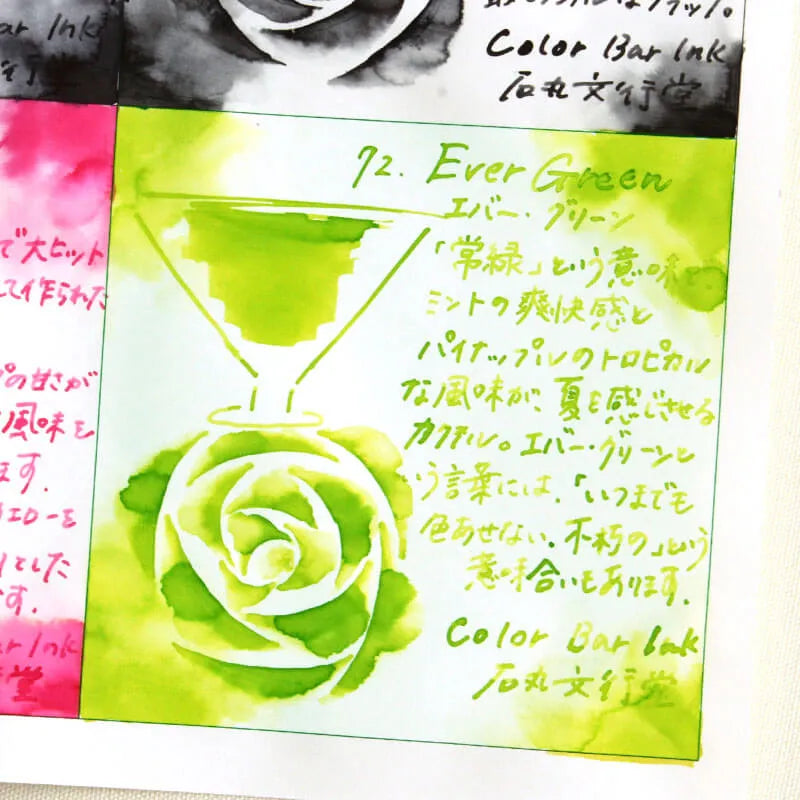 Color Bar Ink
石丸文行堂
ar Ink
行堂
で大ヒット
して作られた
プの甘さが
風味を
ます.
エローを
とした
す.
ar Ink
堂
72. Ever Green
エバー・グリーン
「常緑」という意味で
ミントの爽快感と
パイナップルのトロピカル
な風味が、夏を感じさせる
カクテル。エバー・グリーンと
いう言葉には、「いつまでも
色あせない、不朽の」という
意味合いもあります.
Color Bar Ink
石丸文行堂